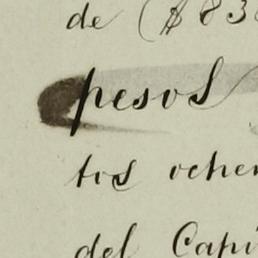 de ($ 83
pesos
tos ochen
del Capi